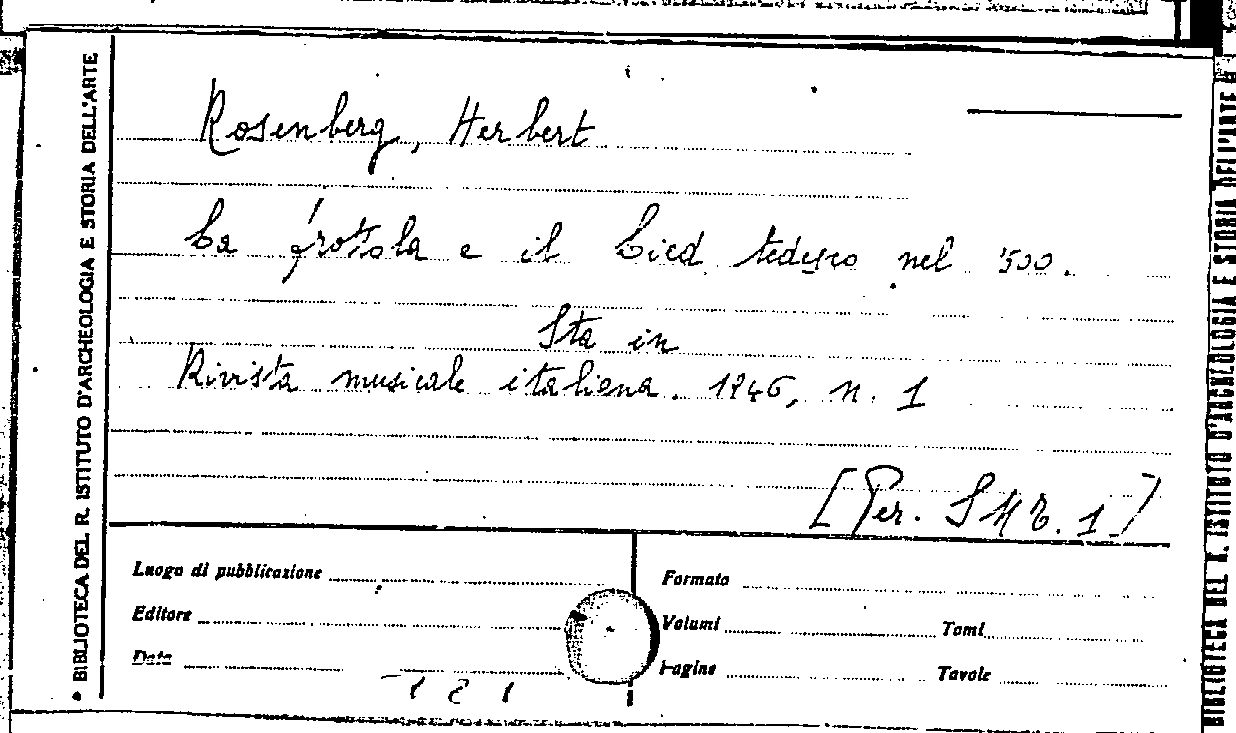 BIBLIOTECA DEL R. ISTITUTO D'ARCHEOLOGIA E STORIA DELL'ARTE
Rosenberg, Herbert
La frottola e il Lied tedesco nel '500.
Sta in
Rivista musicale italiana. 1946, n. 1
[Per. SMR. 1]
Luogo di pubblicazione
Formato
Editore
Volumi
Tomi
Data
Pagine
Tavole
BIBLIOTECA DEL R. ISTITUTO D'ARCHEOLOGIA E STORIA DELL'ARTE